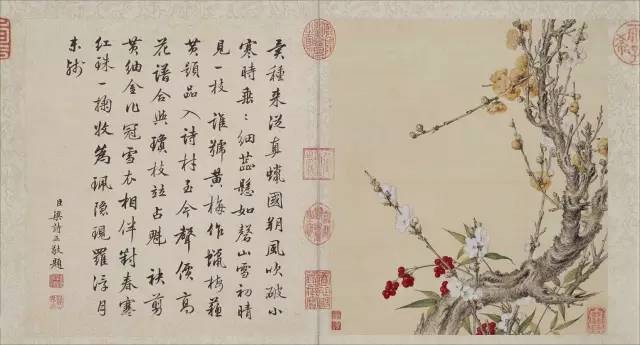 種来從真蠟國朔風吹破小
寒時垂〻細蕊懸如磬山雪初晴
見一枝 誰號黃梅作蠟梅蘇
黃題品入詩材至今聲價高
花譜合與瓊枝竝占魁 袂剪
黃紬金冠雪衣相伴對春寒
紅珠一掬收為珮隱現羅浮月
未殘
臣梁詩正敬題